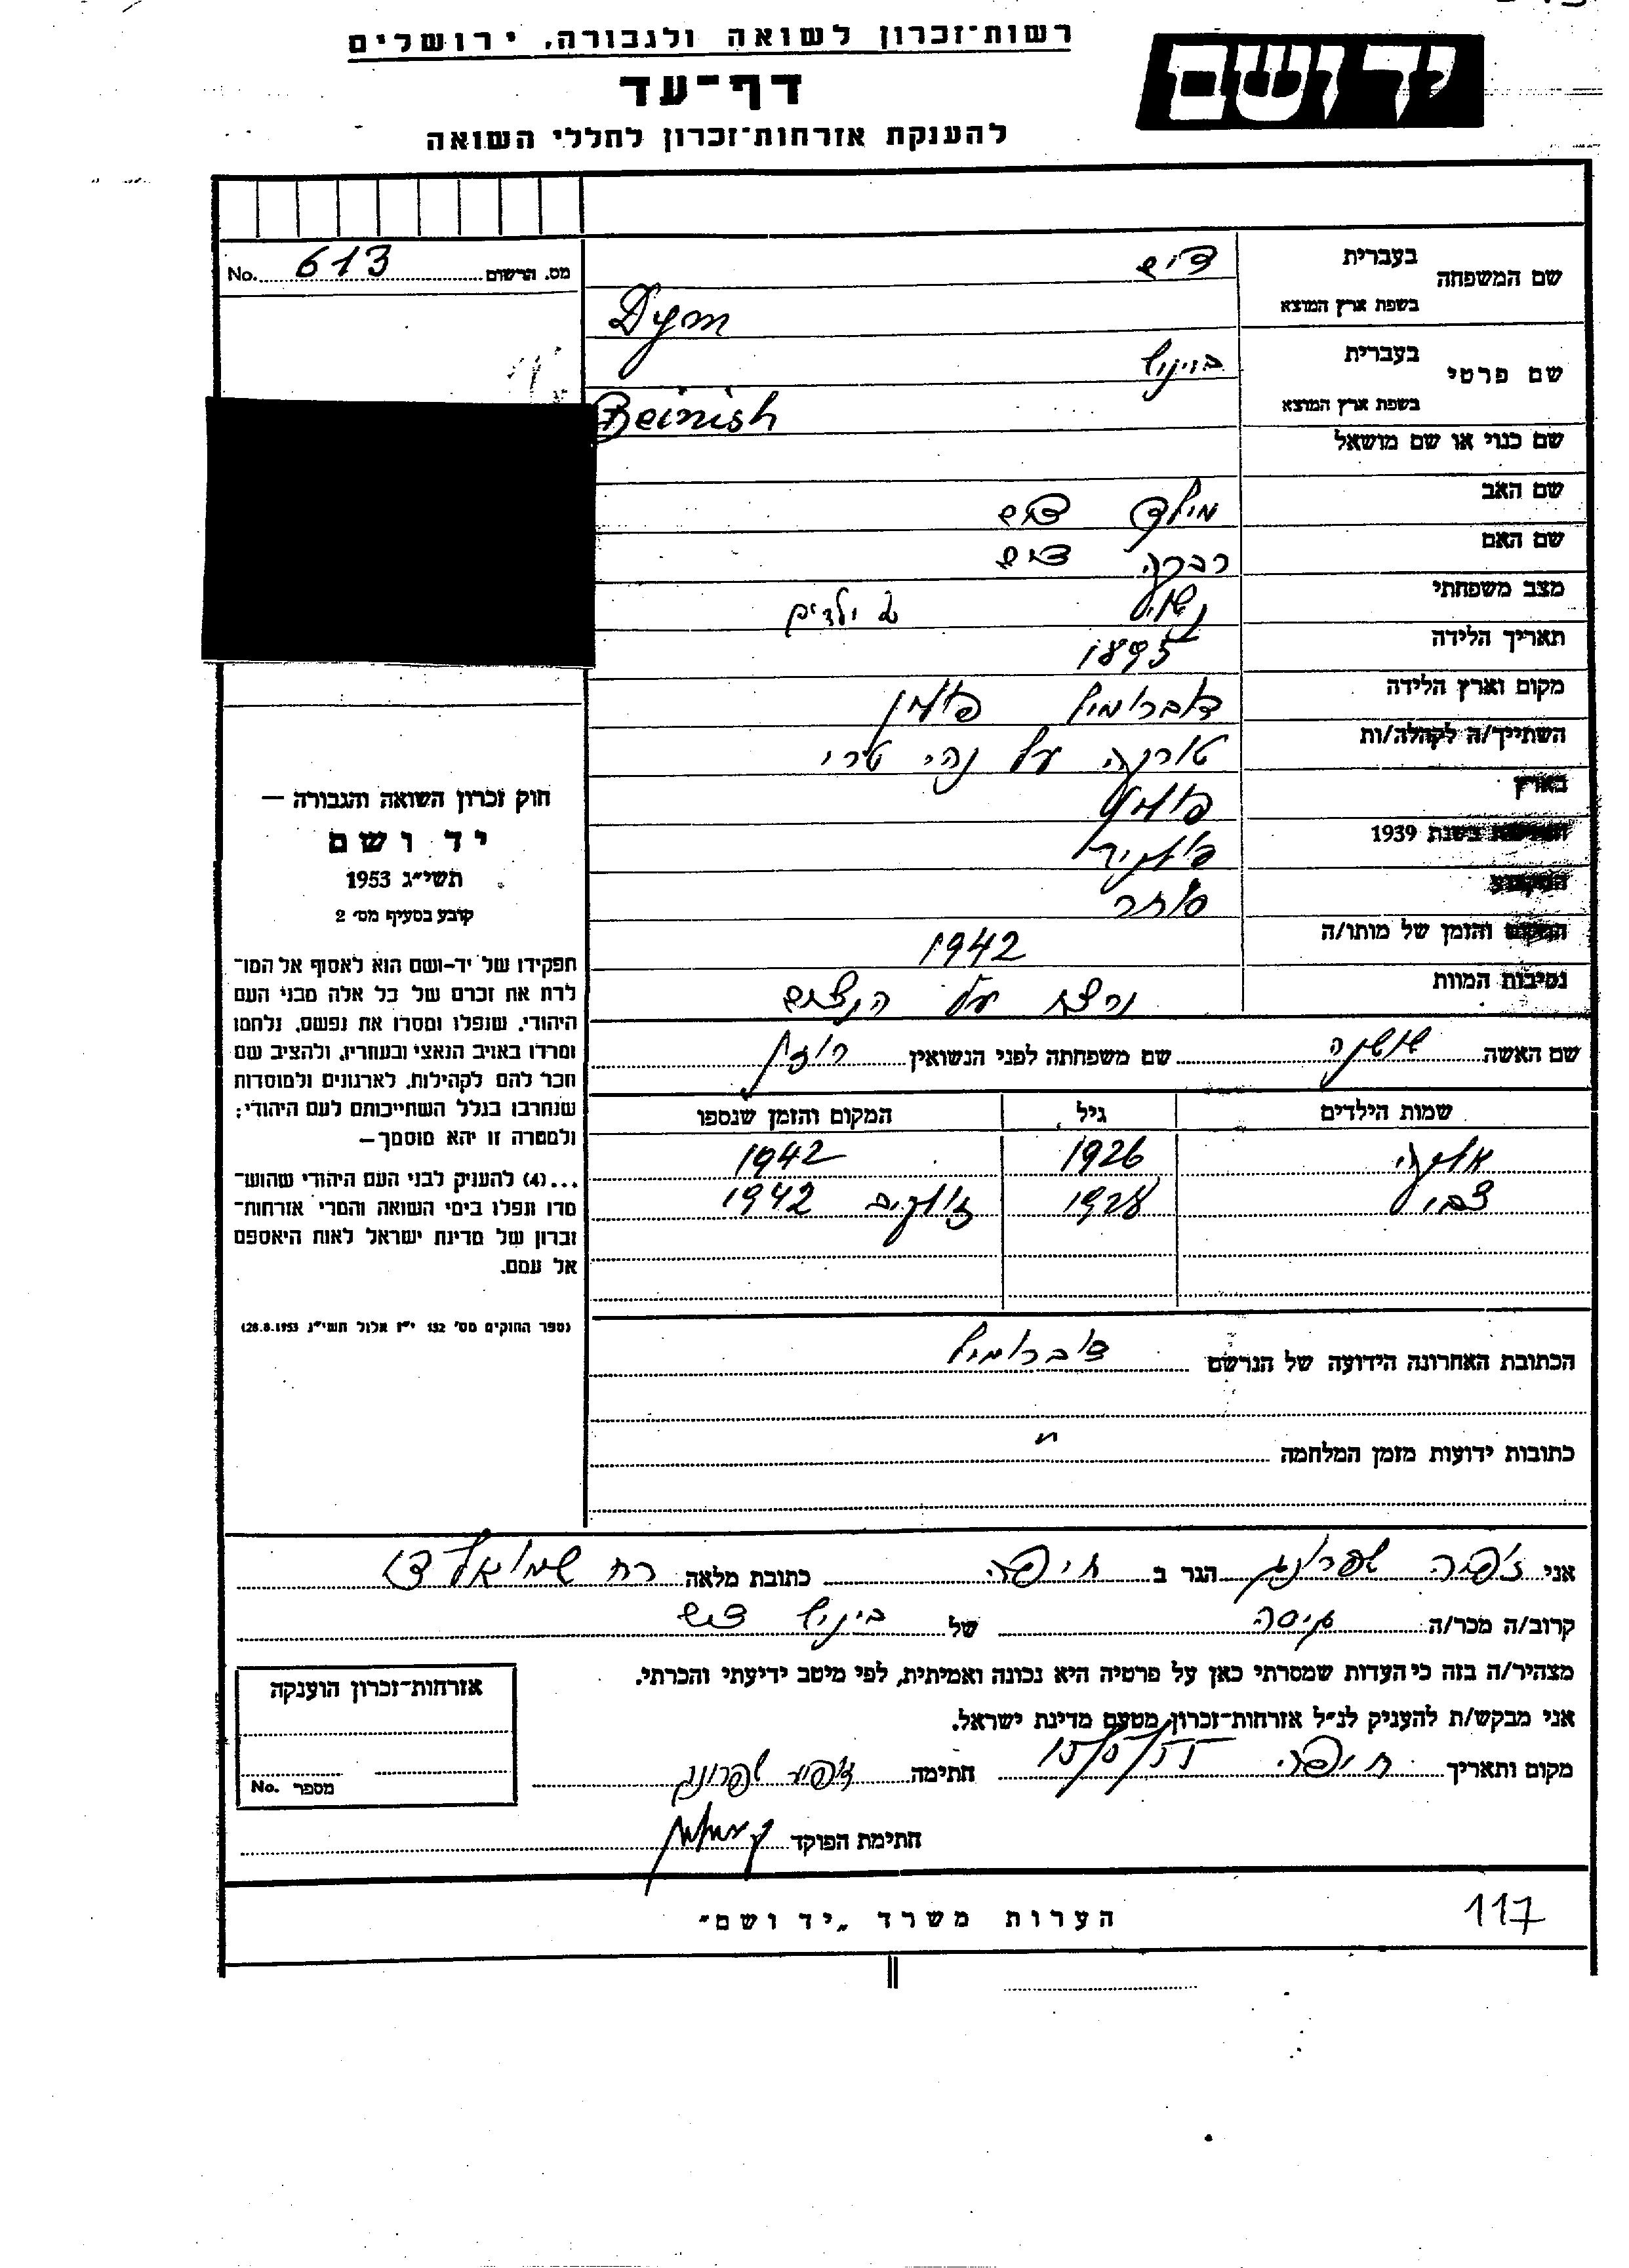 רשות־זכרון לשואה ולגבורה, ירושלים
ידושם
דף־עד
להענקת אזרחות־זכרון לחללי השואה
מס. הרשום 613 No.
שם המשפחה
בעברית דים
בשפת ארץ המוצא Dym
שם פרטי
בעברית
בשפת ארץ המוצא Beinish
שם כנוי או שם מושאל
שם האב דים
שם האם רבקה דים
מצב משפחתי נשוי 2 ילדים
תאריך הלידה 1895
מקום וארץ הלידה דוברומיל פולין
השתייך/ה לקהלה/ות על נהר
בארץ פולין
בשנת 1939
המקצוע סוחר
המקום והזמן של מותו/ה 1942
נסיבות המוות נרצח על הנצים
שם האשה שושנה שם משפחתה לפני הנשואין
שמות הילדים גיל המקום והזמן שנספו
1926 1942
צבי 1928 1942
הכתובת האחרונה הידועה של הנרשם דוברומיל
כתובות ידועות מזמן המלחמה "
חוק זכרון השואה והגבורה —
יד ושם
תשי״ג 1953
קובע בסעיף מס׳ 2
תפקידו של יד-ושם הוא לאסוף אל המו־
לדת את זכרם של כל אלה מבני העם
היהודי, שנפלו ומסרו את נפשם, נלחמו
ומרדו באויב הנאצי ובעוזריו, ולהציב שם
וזכר להם לקהילות, לארגונים ולמוסדות
שנחרבו בגלל השתייכותם לעם היהודי;
ולמטרה זו יהא מוסמך—
...(4) להעניק לבני העם היהודי שהוש־
מדו ונפלו בימי השואה והמרי אזרחות־
זכרון של מדינת ישראל לאות היאספם
אל עמם.
(ספר החוקים מס׳ 132 י״ז אלול תשי״ג 28.8.1953)
אני צפורה שפרונג הגר ב חיפה כתובת מלאה רח שמואל
קרוב/ה מכר/ה גיסה של דים
מצהיר/ה בזה כי העדות שמסרתי כאן על פרטיה היא נכונה ואמיתית, לפי מיטב ידיעתי והכרתי.
אני מבקש/ת להעניק לנ״ל אזרחות־זכרון מטעם מדינת ישראל.
מקום ותאריך חיפה 15/5/55 חתימה שפרונג
חתימת הפוקד
אזרחות־זכרון הוענקה
מספר No.
הערות משרד „יד ושם״
117